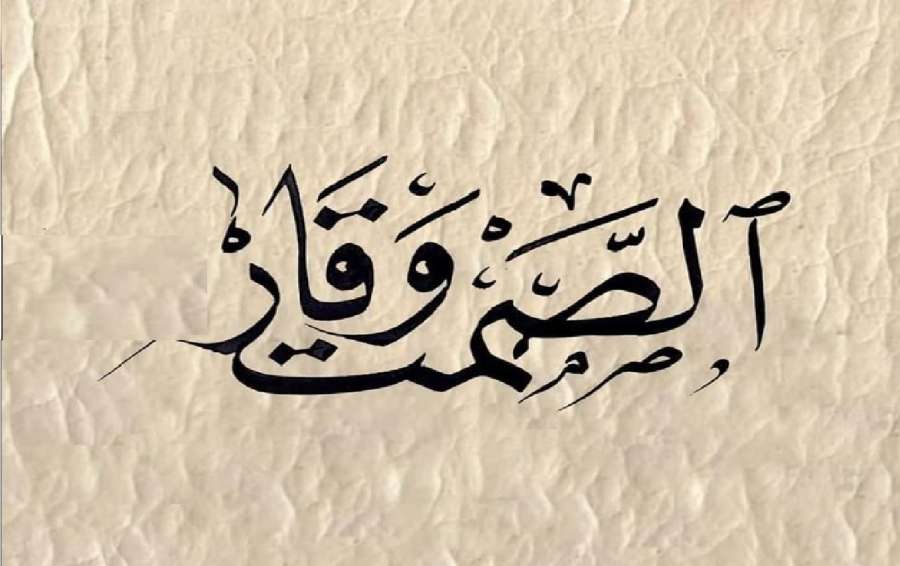 الصَّمْتُ وَقَارٌ